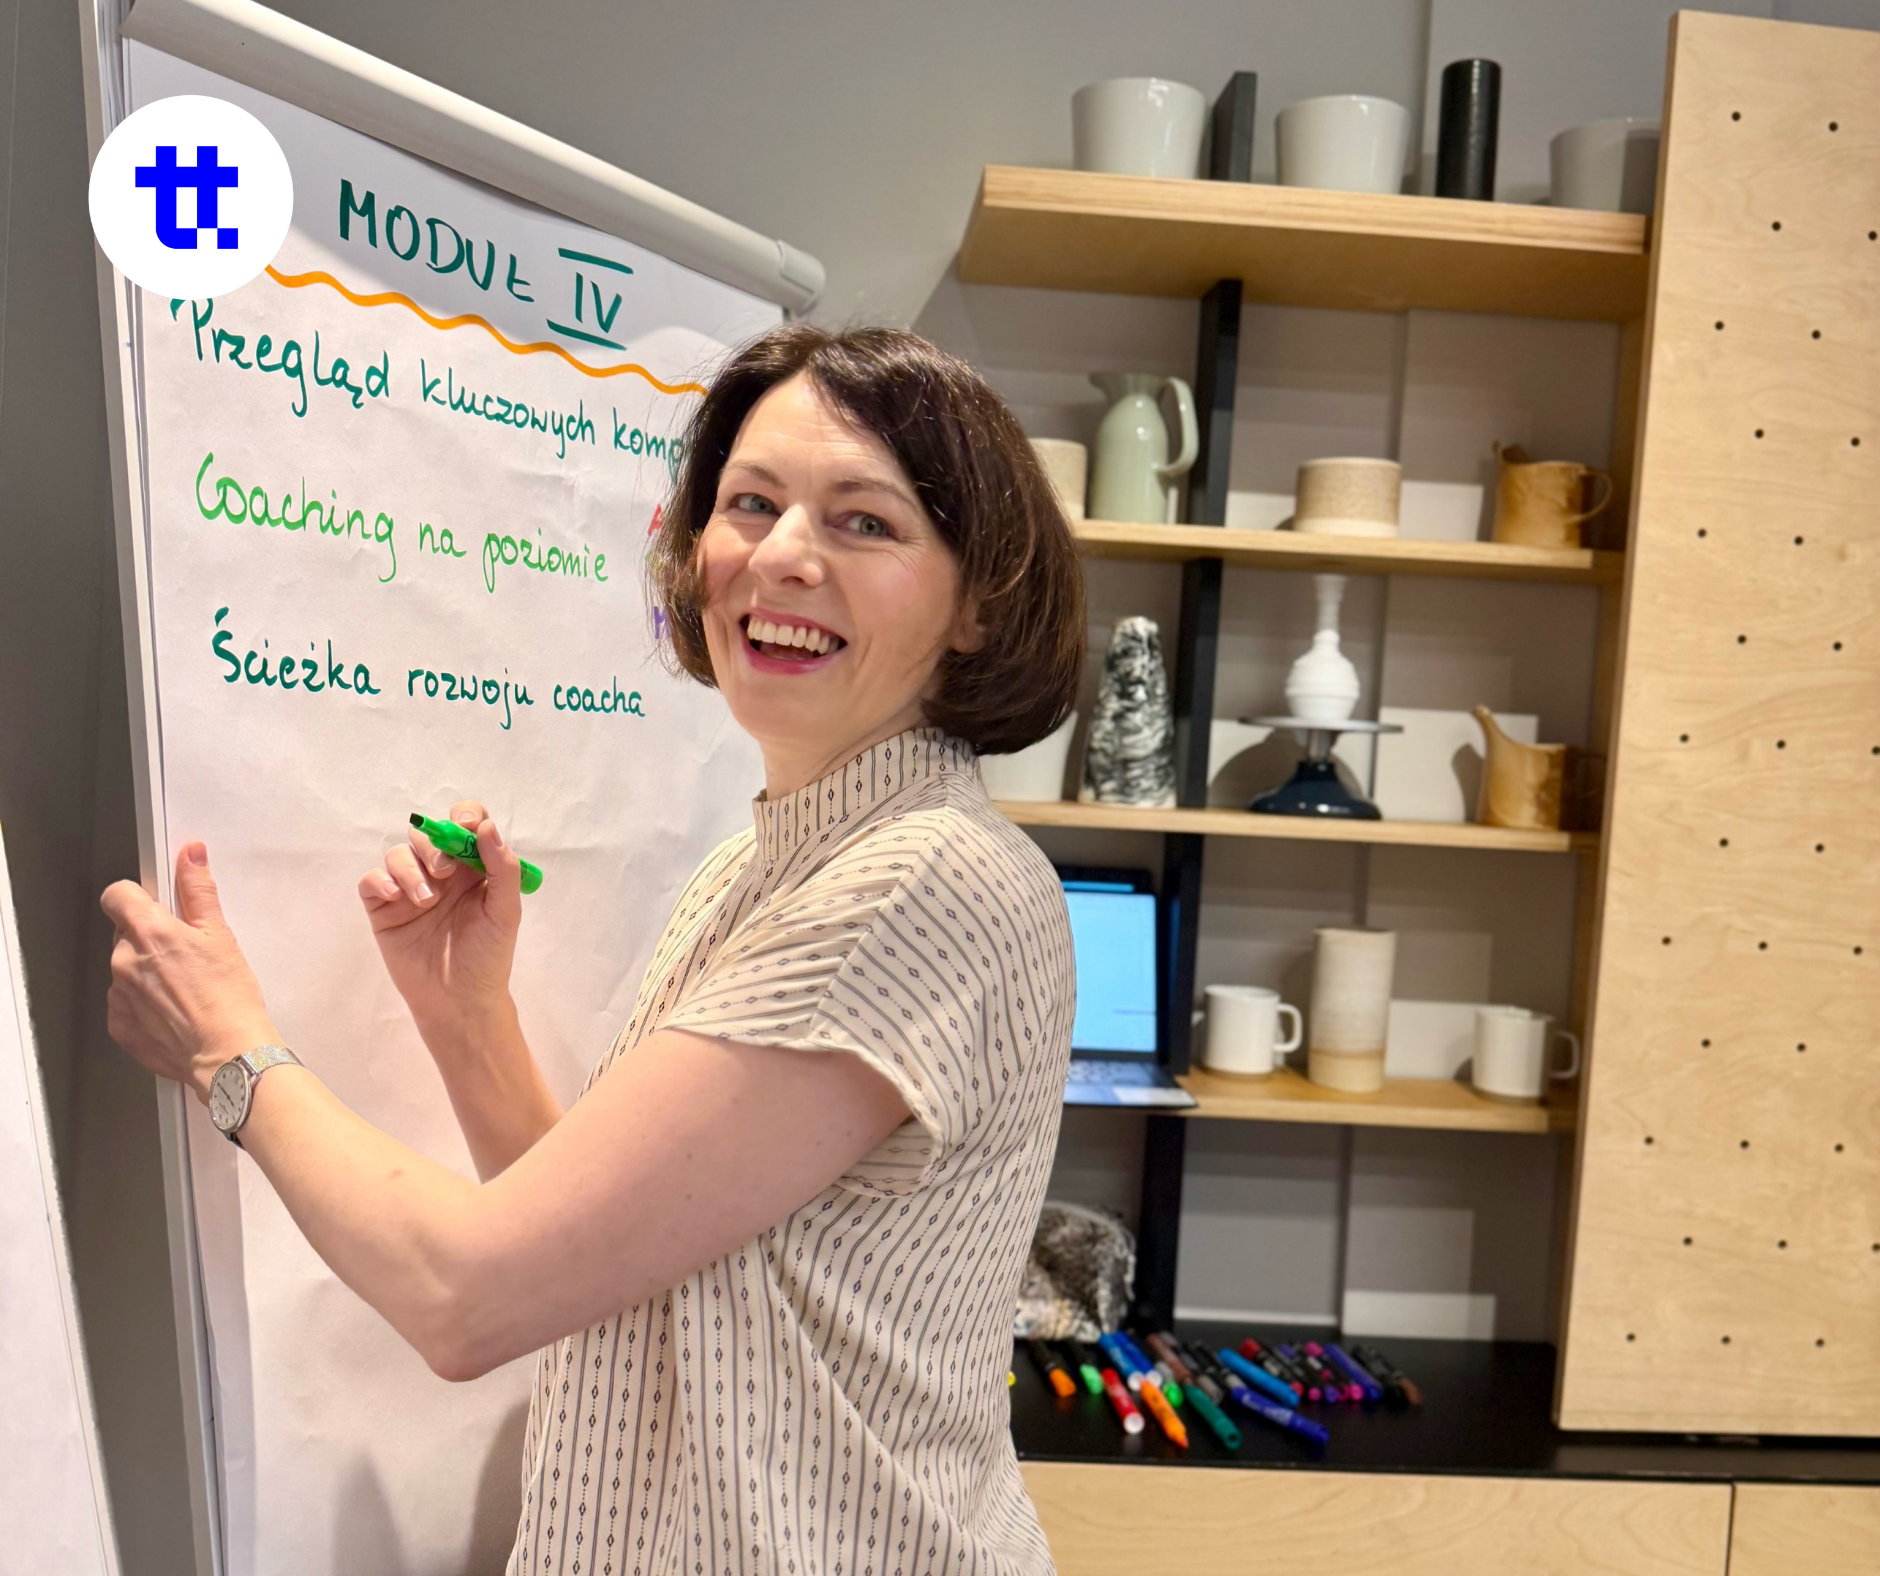 tt.
MODUŁ IV
Przegląd kluczowych
Coaching na poziomie
Ścieżka rozwoju coacha